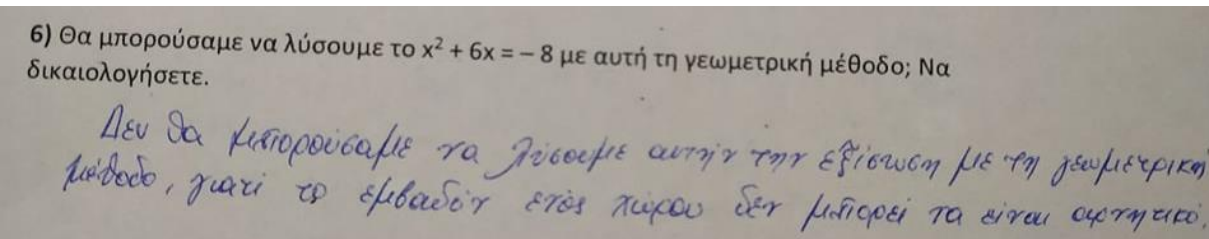 6) Θα μπορούσαμε να λύσουμε το x² + 6x = – 8 με αυτή τη γεωμετρική μέθοδο; Να
δικαιολογήσετε.
Δεν θα μπορούσαμε να λύσουμε αυτήν την εξίσωση με τη γεωμετρική
μέθοδο, γιατί το εμβαδόν ενός χώρου δεν μπορεί να είναι αρνητικό.